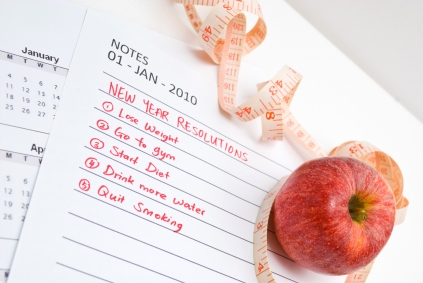 NOTES
01 - JAN - 2010
NEW YEAR RESOLUTIONS
① Lose Weight
② Go to gym
③ Start Diet
④ Drink more water
⑤ Quit Smoking
January
M T W
4 5 6 7
11 12 13 14
18 19 20 21
25 26 27 28
M T W